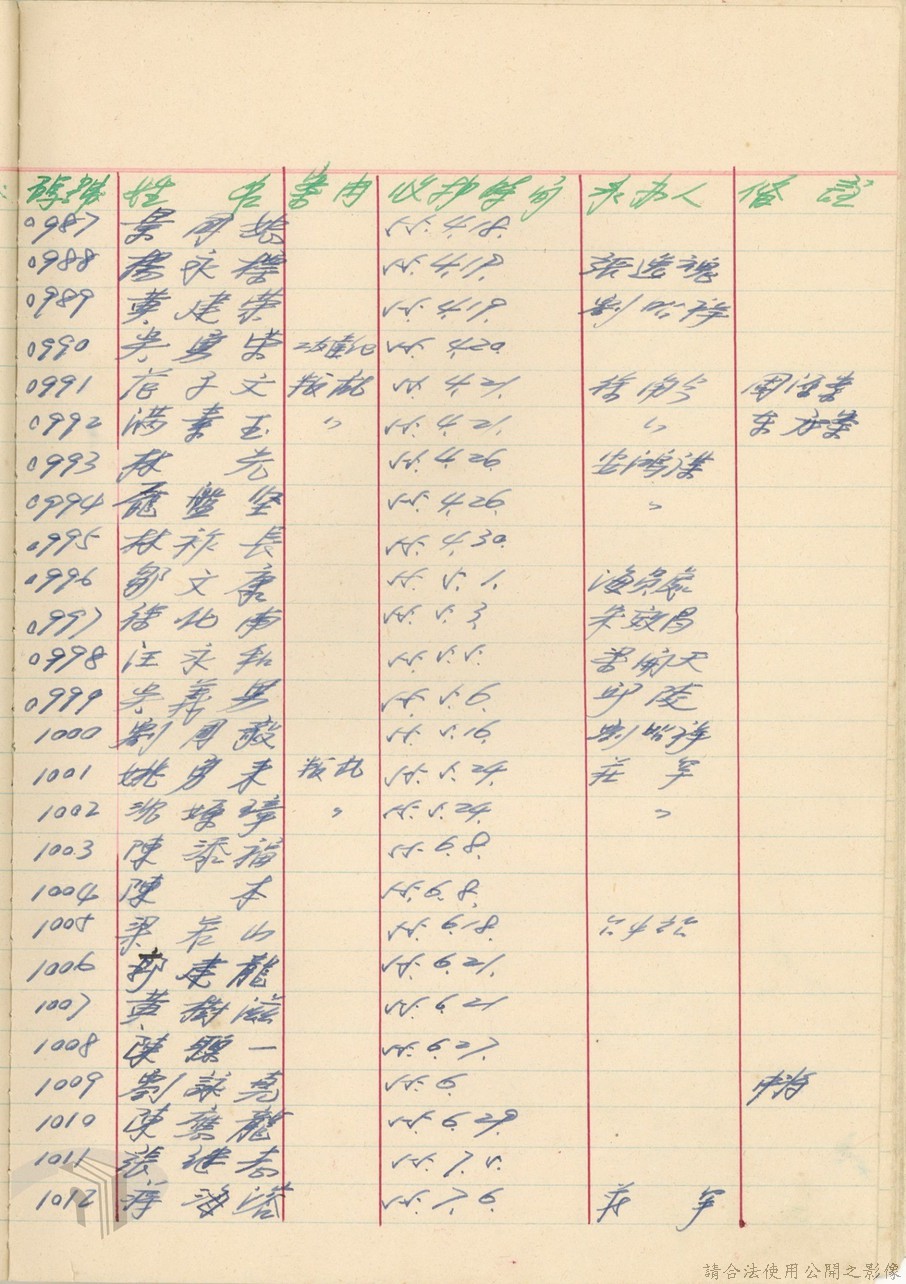 號碼 姓名 案由 收押時間 承办人 備註
0987 景周 55.4.18.
0988 楊永 55.4.18
0989 黃建荣 55.4.18. 劉昭祥
0990 吳寅 55.4.20
0991 范子文 叛乱 55.4.21. 徐南
0992 滿素玉 〃 55.4.21. 〃
0993 林光 55.4.26. 安鴻
0994 龐盤堅 55.4.26. 〃
0995 林裕長 55.4.30.
0996 鄒文康 55.5.1.
0997 徐北南 55.5.3 朱效昌
0998 汪永和 55.5.5. 開天
0999 吳義男 55.5.6. 邱陵
1000 劉周毅 55.5.16. 劉昭祥
1001 姚勇来 叛乱 55.5.24. 莊軍
1002 沈嫄璋 〃 55.5.24. 〃
1003 陳添福 55.6.8.
1004 陳本 55.6.8.
1005 梁若山 55.6.18.
1006 建龍 55.6.21.
1007 黃樹滋 55.6.21
1008 陳一 55.6.27.
1009 劉詠堯 55.6.
1010 陳應龍 55.6.29.
1011 張继志 55.7.5.
1012 蒋海溶 55.7.6. 莊軍
請合法使用公開之影像